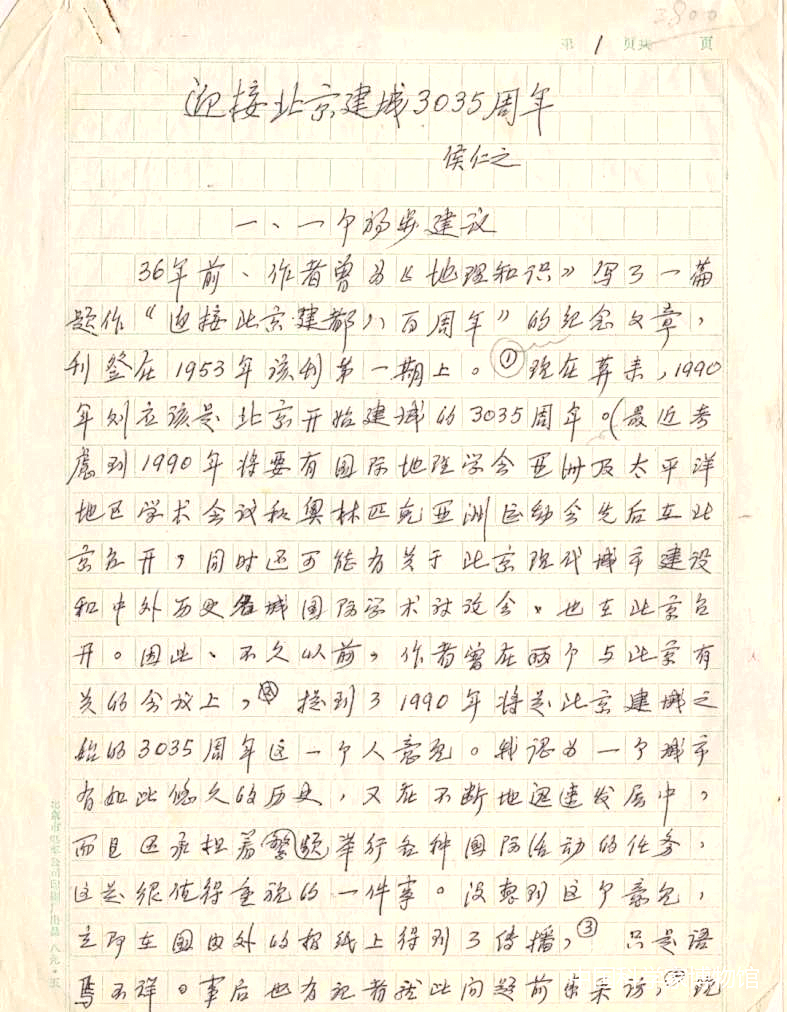 3800
第 1 页共 页
迎接北京建城3035周年
侯仁之
一、一个初步建议
36年前、作者曾为《地理知识》写了一篇
题作“迎接北京建都八百周年”的纪念文章，
刊登在1953年该刊第一期上。①现在算来，1990
年则应该是北京开始建城的3035周年。（最近考
虑到1990年将要有国际地理学会亚洲及太平洋
地区学术会议和奥林匹克亚洲运动会先后在北
京召开，同时还可能有关于北京现代城市建设
和中外历史名城国际学术讨论会，也在北京召
开。因此、不久以前，作者曾在两个与北京有
关的会议上，②提到了1990年将是北京建城之
始的3035周年这一个人意见。我认为一个城市
有如此悠久的历史，又在不断地迅速发展中，
而且还承担着繁频举行各种国际活动的任务，
这是很值得重视的一件事。没想到这个意见，
立即在国内外的报纸上得到了传播，③只是语
焉不详。事后也有记者就此问题前来采访，现
北京市电车公司印刷厂出品 八九·五
博物馆